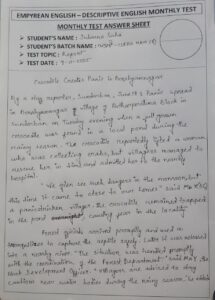 EMPYREAN ENGLISH – DESCRIPTIVE ENGLISH MONTHLY TEST
MONTHLY TEST ANSWER SHEET
➤ STUDENT'S NAME :
➤ STUDENT'S BATCH NAME :
➤ TEST TOPIC : Report
➤ TEST DATE :
Crocodile Creates Panic in
By a staff reporter, Sundarban, June 18 : Panic spread
in village of Patharpratima Block in
Sundarban on Tuesday evening when a full grown
crocodile was found in a local pond during the
rainy season. The crocodile reportedly bited a woman
who was collecting crabs, but villagers managed to
rescue her in time and admitted her to the nearby
hospital.
"We often see such dangers in the monsoon, but
this time it came so close to our homes" said
a panicstricken villager. The crocodile remained trapped
in the pond causing fear in the locality.
Forest officials arrived promptly and used a
to capture the reptile safely. Later it was released
into a nearby river. "The situation was handled promptly
with the coordination of the Forest Department" said the
Block Development Officer. "Villagers are advised to stay
cautious near water bodies during the rainy season, he added